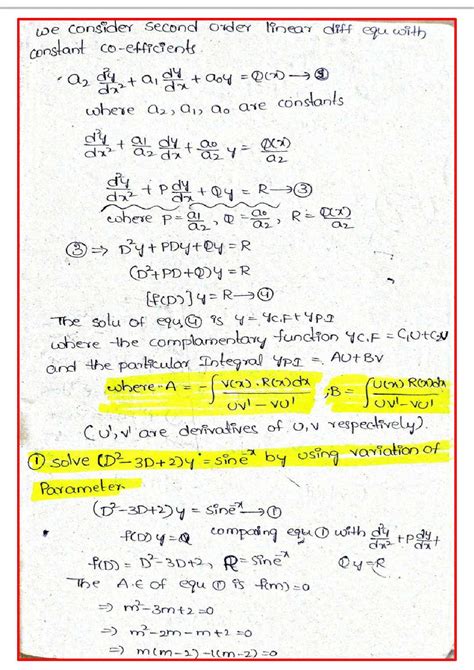 we consider second order linear diff equ with
constant co-efficients.
a₂ d²y/dx² + a₁ dy/dx + a₀y = Q(x) →
where a₂, a₁, a₀ are constants
d²y/dx² + a₁/a₂ dy/dx + a₀/a₂ y = Q(x)/a₂
d²y/dx² + P dy/dx + Qy = R → ③
where P = a₁/a₂, Q = a₀/a₂, R = Q(x)/a₂
③ ⇒ D²y + PDy + Qy = R
(D² + PD + Q)y = R
[f(D)]y = R → ④
The solu of equ ④ is y = yC.F + yPI
where the complamentary function yC.F = C₁U + C₂V
and the particular Integral yPI = AU + BV
where A = -∫ V(x).R(x)dx / UV' - VU' , B = ∫ U(x) R(x)dx / UV' - VU'
(U', V' are derivatives of U, V respectively).
① solve (D² - 3D + 2)y = sine⁻ˣ by using variation of
Parameter
(D² - 3D + 2)y = sine⁻ˣ → ①
f(D)y = Q comparing equ ① with d²y/dx² + P dy/dx +
f(D) = D² - 3D + 2, R = sine⁻ˣ Qy = R
The A.E of equ ① is f(m) = 0
⇒ m² - 3m + 2 = 0
⇒ m² - 2m - m + 2 = 0
⇒ m(m - 2) - 1(m - 2) = 0